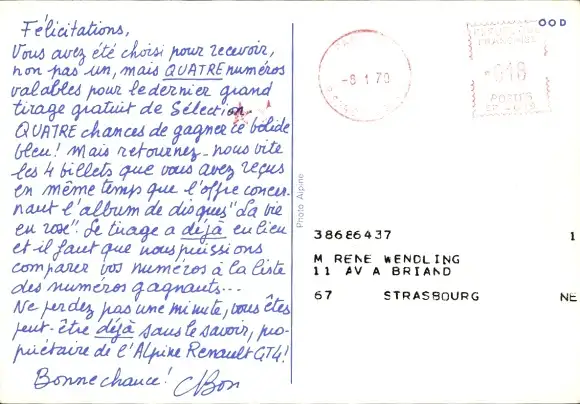 Félicitations,
Vous avez été choisi pour recevoir,
non pas un, mais QUATRE numéros
valables pour le dernier grand
tirage gratuit de Sélection.
QUATRE chances de gagner ce bolide
bleu! Mais retournez-nous vite
les 4 billets que vous avez reçus
en même temps que l'offre concer-
nant l'album de disques "La vie
en rose". Le tirage a déjà eu lieu
et il faut que nous puissions
comparer vos numéros à la liste
des numéros gagnants...
Ne perdez pas une minute, vous êtes
peut-être déjà sans le savoir, pro-
priétaire de l'Alpine Renault GT4!
Bonne chance! CBon
Photo Alpine
-8 1 70
OOD
REPUBLIQUE
FRANCAISE
018
POSTES
38686437 1
M RENE WENDLING
11 AV A BRIAND
67 STRASBOURG NE